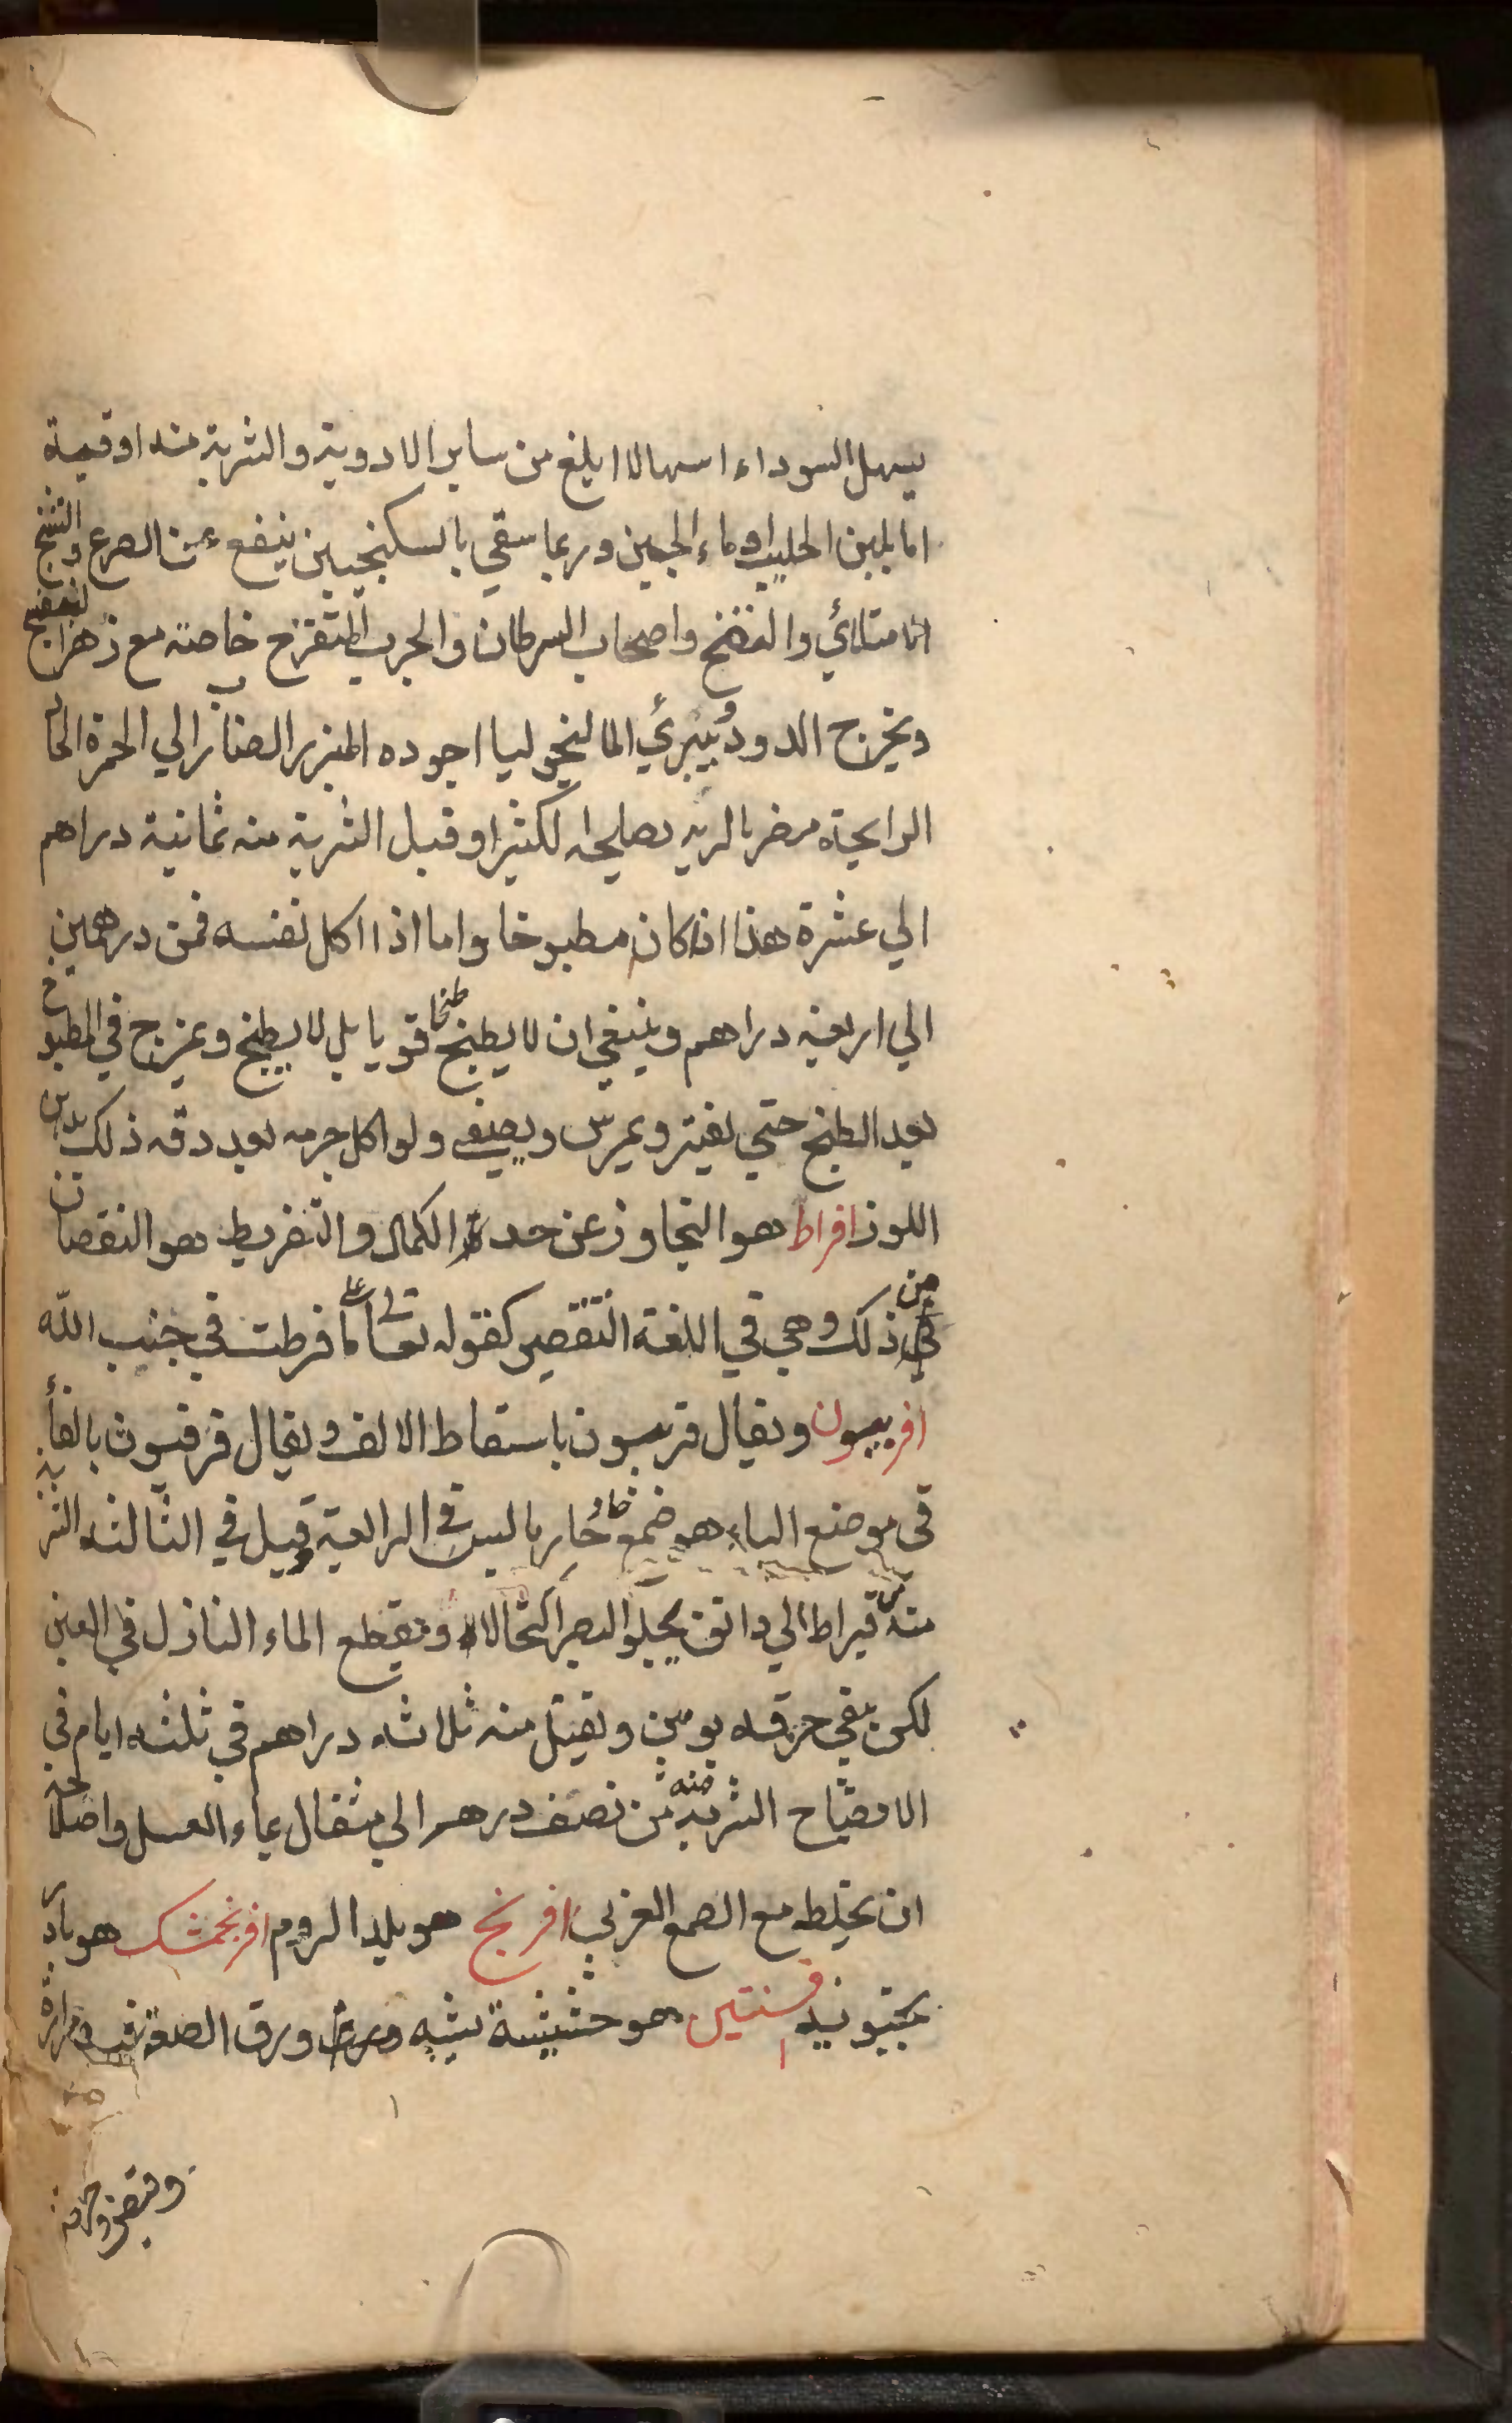 يسهل السوداء اسهالا ابلغ من ساير الادوية والشربة منه اوقية
اما بلبن الحليب او ماء الجبن وربما سقي بالسكنجبين ينفع من الصرع والتشنج
الامتلائي والتفتح واصحاب السرطان والجرب المتقرح خاصة مع زهر البنفسج
ويخرج الدود ويبرئ المالنخوليا اجوده المبزر الضارب الي الحمرة الحاد
الرايحة مضر بالريه يصلحه الكثيرا وقيل الشربة منه ثمانية دراهم
الي عشرة هذا اذا كان مطبوخا واما اذا اكل نفسه فمن درهمين
الي اربعة دراهم وينبغي ان لا يطبخ طبخا قويا بل لا يطبخ ويمزج في المطبوخ
بعد الطبخ حتي يفتر ويمرس ويصفي ولو اكل جرمه بعد دقه ذلك بدهن
اللوز افراط هو التجاوز عن حد الكمال والتفريط هو النقصان
من ذلك وهي في اللغة التقصير كقوله تعالي علي ما فرطت في جنب الله
افربيون ويقال فربيون باسقاط الالف ويقال فرفيون بالفاء
في موضع الباء هو ضمغ حار يابس في الرابعة وقيل في الثالثة الشربة
منه من قيراط الي دانق يجلو البصر اكتحالا ويقطع الماء النازل في العين
لكن يبقي حرقه يومين ويقتل منه ثلاثه دراهم في ثلثه ايام في
الامصباح الشربة منه من نصف درهم الي مثقال بماء العسل واصلاحه
ان يخلط مع الصمغ العربي افرنج هو بلد الروم افرنجمشك هو بادر
نجبويه افسنتين هو حشيشة يشبه ورق الصعتر فيه مرارة
وقبض وحرافة